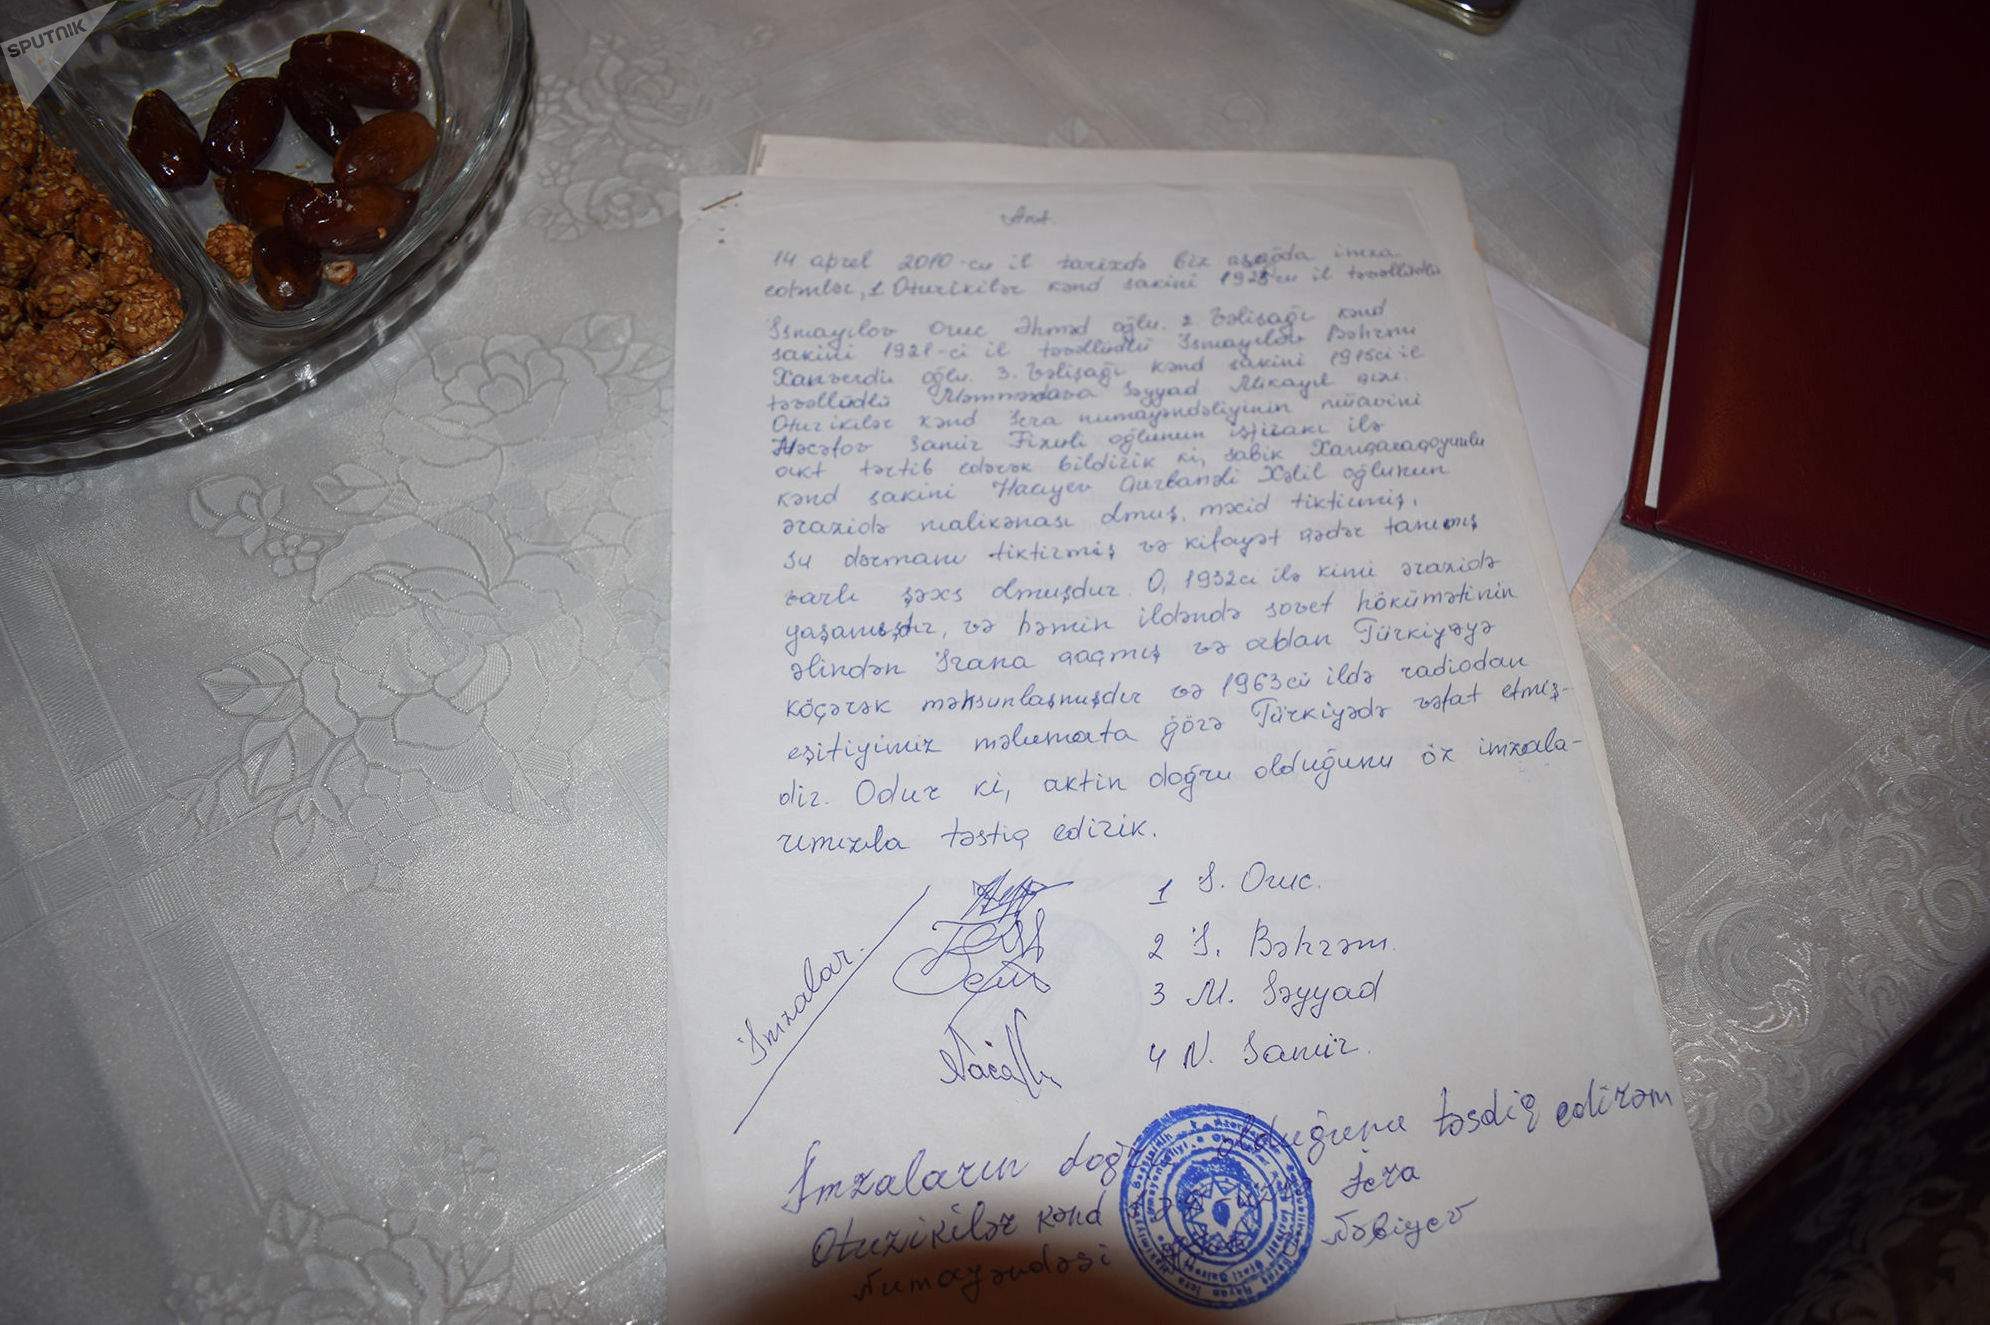 SPUTNIK
Akt.
14 aprel 2010-cu il tarixdə biz aşağıda imza
edənlər, 1 Oturikilər kənd sakini 1925-cu il təvəllüdlü
İsmayılov Oruc Əhməd oğlu. 2. Vəlişağı kənd
sakini 1921-ci il təvəllüdlü İsmayılov Bəhrəm
Xanverdi oğlu. 3. Vəlişağı kənd sakini 1915ci il
təvəllüdlü Məmmədova Səyyad Mikayıl qızı.
Oturikilər kənd İcra numayəndəliyinin müavini
Nəcəfov Samir Fizuli oğlunun iştirakı ilə
akt tərtib edərək bildirik ki, sabik Xanqaraqoyunlu
kənd sakini Hacıyev Qurbanəli Xəlil oğlunun
ərazidə malikanası olmuş, məcid tiktirmiş,
su dərmanı tiktirmiş və kifayət qədər tanımış
varlı şəxs olmuşdur. O, 1932ci ilə kimi ərazidə
yaşamışdır, və həmin ildəndə sovet hökümətinin
əlindən İrana qaçmış və ordan Türkiyəyə
köçərək məhsunlaşmışdır və 1963cü ildə radiodan
eşitiyimiz məlumata görə Türkiyədə vəfat etmiş-
dir. Odur ki, aktin doğru olduğunu öz imzala-
rımızla təstiq edirik.
İmzalar.
1 İ. Oruc.
2 İ. Bəhrəm.
3 M. Səyyad
4 N. Samir.
İmzaların doğru olduğunu təsdiq edirəm
Otuzikilər kənd İcra
Numayəndəsi Nəbiyev